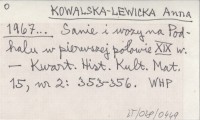 0
KOWALSKA-LEWICKA Anna
1967... Sanie i wozy na Pod-
halu w pierwszej połowie XIX w.
— Kwart. Hist. Kult. Mat.
15, nr 2: 353-356. WHP
IT/048/0449